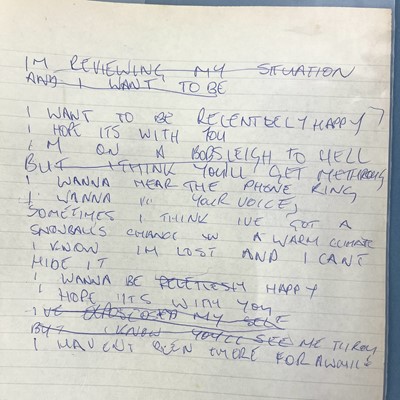 IM REVIEWING MY SITUATION
AND I WANT TO BE
I WANT TO BE RELENTLELY HAPPY
I HOPE ITS WITH YOU
I'M ON A BOBSLEIGH TO HELL
BUT I THINK YOU'LL GET ME THROUG
I WANNA HEAR THE PHONE RING
I WANNA " YOUR VOICE,
SOMETIMES I THINK IVE GOT A
SNOWBALLS CHANCE IN A WARM CLIMATE
I KNOW IM LOST AND I CANT
HIDE IT
I WANNA BE HAPPY
I HOPE ITS WITH YOU
I'VE MY SELF
BUT I KNOW YOU'LL SEE ME THROU
I HAVENT BEEN THERE FOR AWHILE